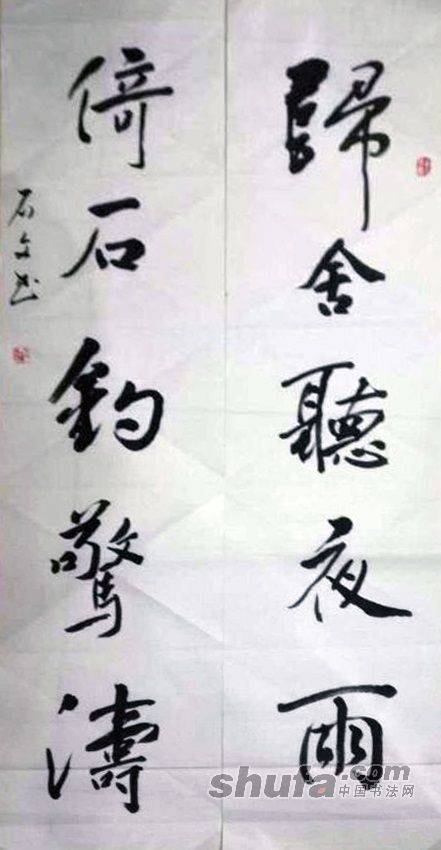 歸舍聽夜雨
倚石釣驚濤
石文书
shufa.com
中国书法网